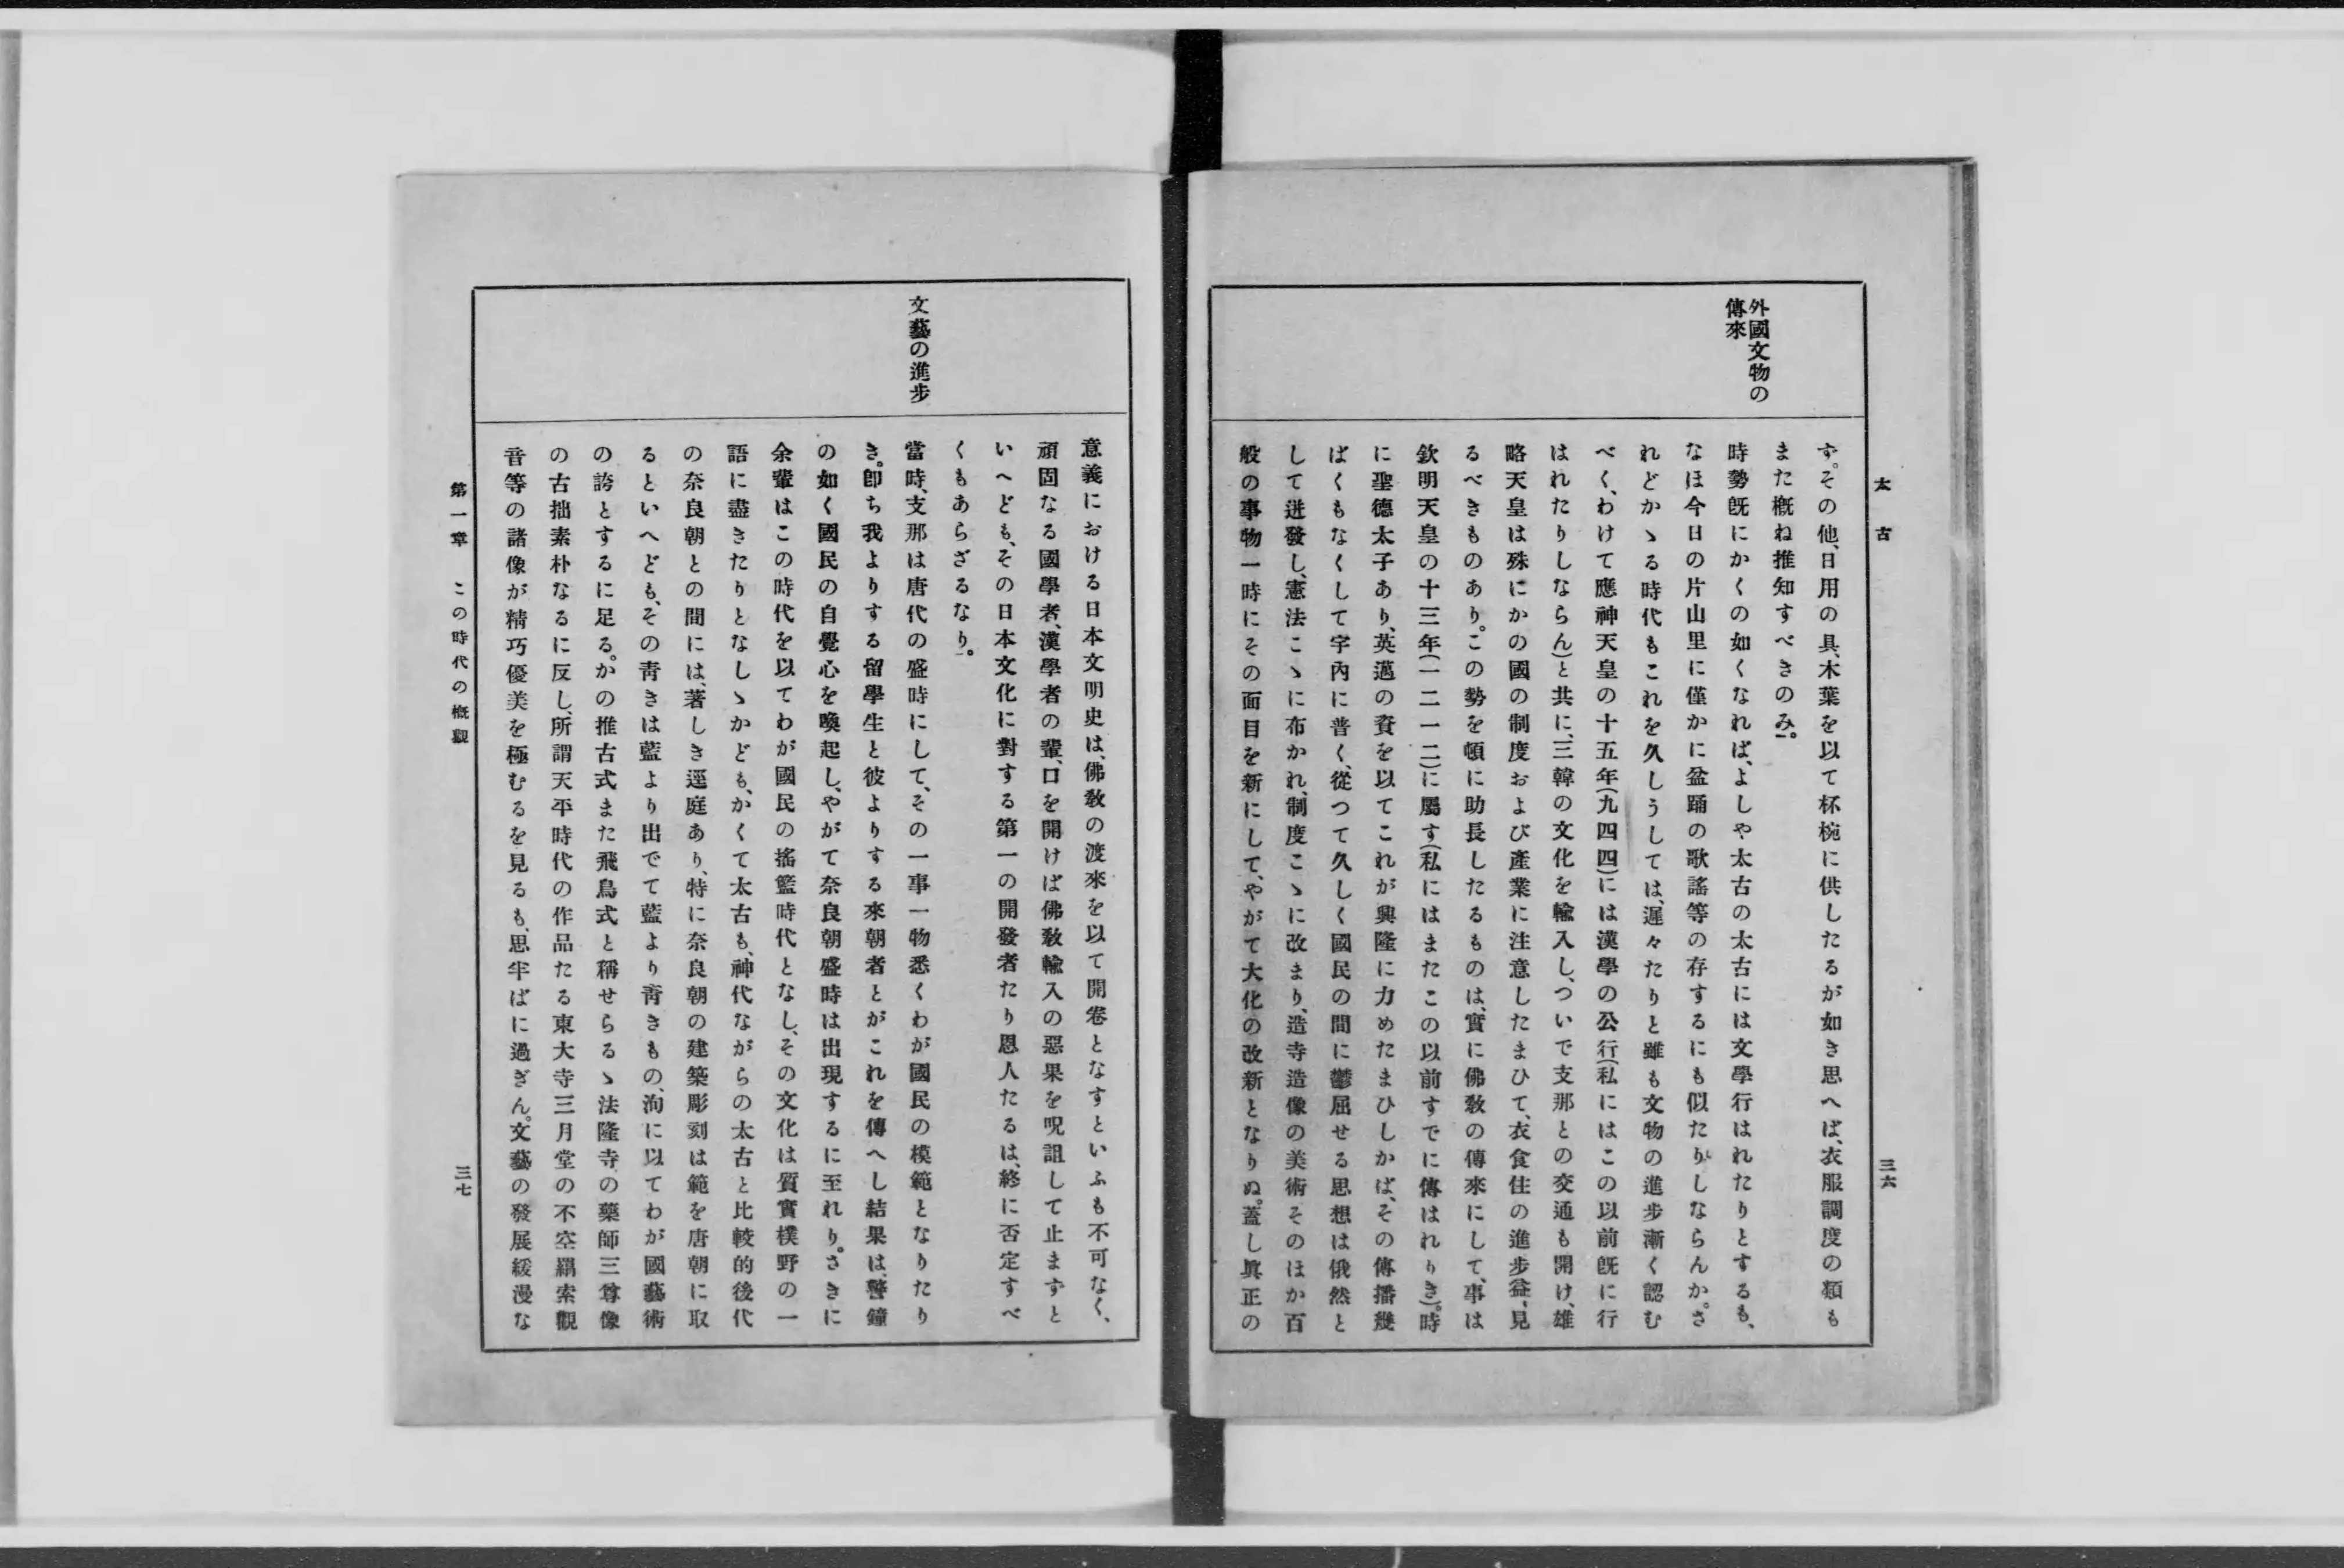 太古
三六
外國文物の
傳來
ず。その他、日用の具、木葉を以て杯椀に供したるが如き思へば、衣服調度の類も
また概ね推知すべきのみ。
時勢既にかくの如くなれば、よしや太古の太古には文學行はれたりとするも、
なほ今日の片山里に僅かに盆踊の歌謠等の存するにも似たりしならんか。さ
れどかゝる時代もこれを久しうしては、遲々たりと雖も文物の進步漸く認む
べく、わけて應神天皇の十五年(九四四)には漢學の公行(私にはこの以前既に行
はれたりしならん)と共に、三韓の文化を輸入し、ついで支那との交通も開け、雄
略天皇は殊にかの國の制度および產業に注意したまひて、衣食住の進步益、見
るべきものあり。この勢を頓に助長したるものは、實に佛敎の傳來にして、事は
欽明天皇の十三年(一二一二)に屬す(私にはまたこの以前すでに傳はれりき)。時
に聖德太子あり、英邁の資を以てこれが興隆に力めたまひしかば、その傳播幾
ばくもなくして宇內に普く、從つて久しく國民の間に鬱屈せる思想は俄然と
して迸發し、憲法こゝに布かれ、制度こゝに改まり、造寺造像の美術そのほか百
般の事物一時にその面目を新にして、やがて大化の改新となりぬ。蓋し眞正の
文藝の進步
意義における日本文明史は、佛敎の渡來を以て開卷となすといふも不可なく、
頑固なる國學者、漢學者の輩、口を開けば佛敎輸入の惡果を呪詛して止まずと
いへども、その日本文化に對する第一の開發者たり恩人たるは、終に否定すべ
くもあらざるなり。
當時、支那は唐代の盛時にして、その一事一物悉くわが國民の模範となりたり
き。卽ち我よりする留學生と彼よりする來朝者とがこれを傳へし結果は、警鐘
の如く國民の自覺心を喚起し、やがて奈良朝盛時は出現するに至れり。さきに
余輩はこの時代を以てわが國民の搖籃時代となし、その文化は質實樸野の一
語に盡きたりとなしゝかども、かくて太古も、神代ながらの太古と比較的後代
の奈良朝との間には、著しき逕庭あり、特に奈良朝の建築彫刻は範を唐朝に取
るといへども、その靑きは藍より出でて藍より靑きもの、洵に以てわが國藝術
の誇とするに足る。かの推古式また飛鳥式と稱せらるゝ法隆寺の藥師三尊像
の古拙素朴なるに反し、所謂天平時代の作品たる東大寺三月堂の不空羂索觀
音等の諸像が精巧優美を極むるを見るも、思半ばに過ぎん。文藝の發展緩漫な
第一章 この時代の概觀
三七